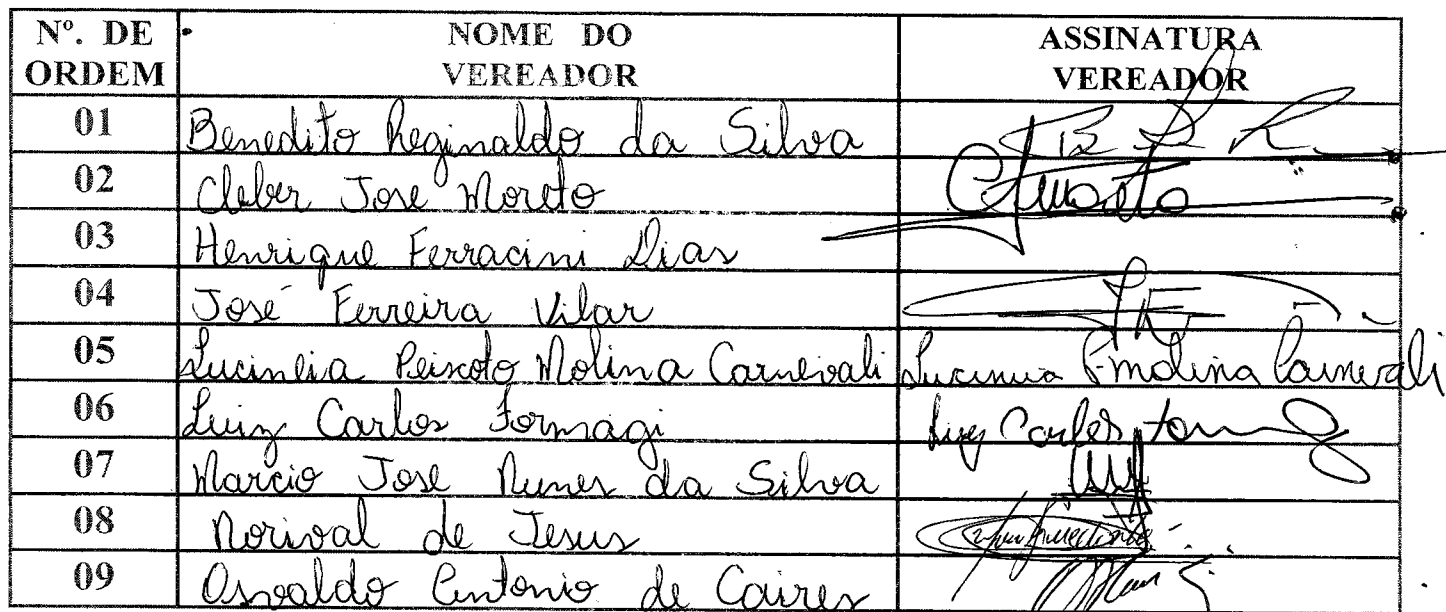 Nº. DE ORDEM NOME DO VEREADOR ASSINATURA VEREADOR
01 Benedito Reginaldo da Silva
02 Cleber Jose Moreto CJMoreto
03 Henrique Ferracini Dias
04 José Ferreira Vilar
05 Lucineia Peixoto Molina Carnevali Lucineia P Molina Carnevali
06 Luiz Carlos Formagi Luiz Carlos
07 Marcio José Nunes da Silva
08 Norival de Jesus
09 Osvaldo Antonio de Caires